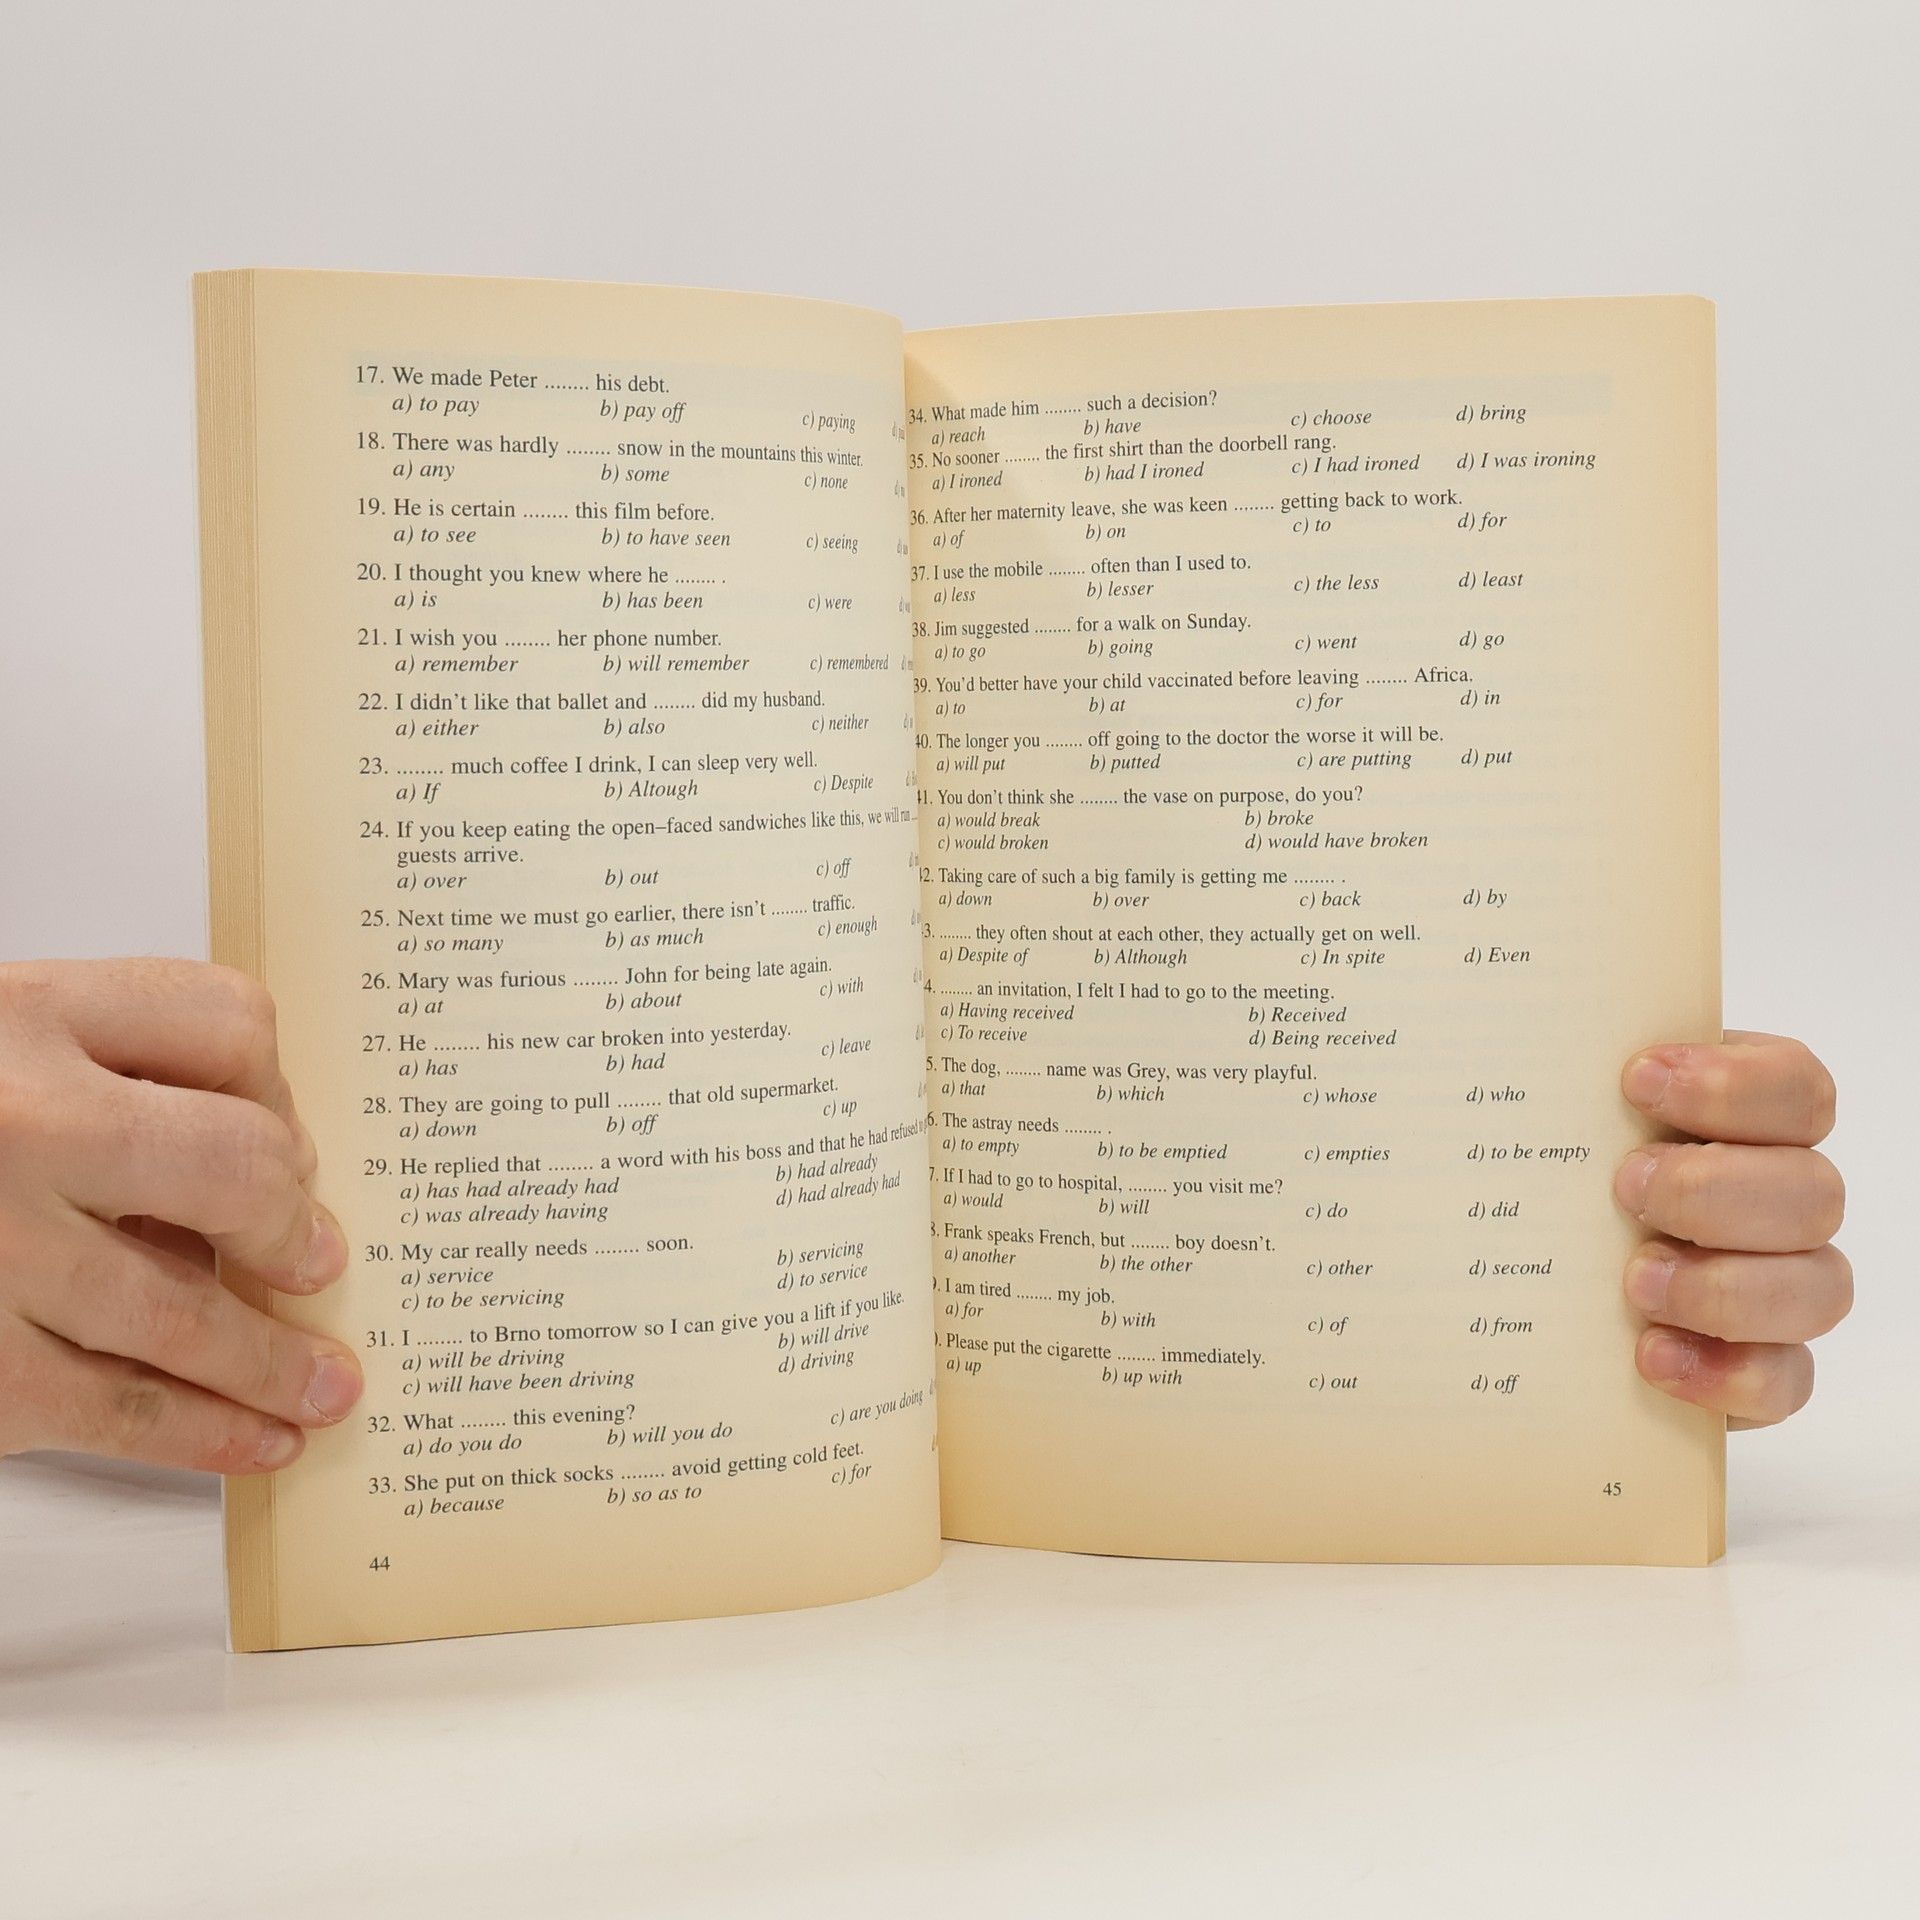 17. We made Peter ........ his debt.
a) to pay b) pay off c) paying
18. There was hardly ........ snow in the mountains this winter.
a) any b) some c) none
19. He is certain ........ this film before.
a) to see b) to have seen c) seeing
20. I thought you knew where he ........ .
a) is b) has been c) were
21. I wish you ........ her phone number.
a) remember b) will remember c) remembered
22. I didn't like that ballet and ........ did my husband.
a) either b) also c) neither
23. ........ much coffee I drink, I can sleep very well.
a) If b) Altough c) Despite
24. If you keep eating the open–faced sandwiches like this, we will run
guests arrive.
a) over b) out c) off
25. Next time we must go earlier, there isn't ........ traffic.
a) so many b) as much c) enough
26. Mary was furious ........ John for being late again.
a) at b) about c) with
27. He ........ his new car broken into yesterday.
a) has b) had c) leave
28. They are going to pull ........ that old supermarket.
a) down b) off c) up
29. He replied that ........ a word with his boss and that he had refused
a) has had already had b) had already
c) was already having d) had already had
30. My car really needs ........ soon.
a) service b) servicing
c) to be servicing d) to service
31. I ........ to Brno tomorrow so I can give you a lift if you like.
a) will be driving b) will drive
c) will have been driving d) driving
32. What ........ this evening?
a) do you do b) will you do c) are you doing
33. She put on thick socks ........ avoid getting cold feet.
a) because b) so as to c) for
44
34. What made him ........ such a decision?
a) reach b) have c) choose d) bring
35. No sooner ........ the first shirt than the doorbell rang.
a) I ironed b) had I ironed c) I had ironed d) I was ironing
36. After her maternity leave, she was keen ........ getting back to work.
a) of b) on c) to d) for
37. I use the mobile ........ often than I used to.
a) less b) lesser c) the less d) least
38. Jim suggested ........ for a walk on Sunday.
a) to go b) going c) went d) go
39. You'd better have your child vaccinated before leaving ........ Africa.
a) to b) at c) for d) in
40. The longer you ........ off going to the doctor the worse it will be.
a) will put b) putted c) are putting d) put
41. You don't think she ........ the vase on purpose, do you?
a) would break b) broke
c) would broken d) would have broken
2. Taking care of such a big family is getting me ........ .
a) down b) over c) back d) by
3. ........ they often shout at each other, they actually get on well.
a) Despite of b) Although c) In spite d) Even
4. ........ an invitation, I felt I had to go to the meeting.
a) Having received b) Received
c) To receive d) Being received
5. The dog, ........ name was Grey, was very playful.
a) that b) which c) whose d) who
6. The astray needs ........ .
a) to empty b) to be emptied c) empties d) to be empty
7. If I had to go to hospital, ........ you visit me?
a) would b) will c) do d) did
8. Frank speaks French, but ........ boy doesn't.
a) another b) the other c) other d) second
. I am tired ........ my job.
a) for b) with c) of d) from
. Please put the cigarette ........ immediately.
a) up b) up with c) out d) off
45